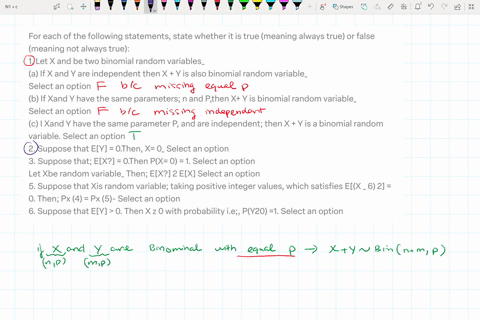 N1 + c
Shapes
For each of the following statements, state whether it is true (meaning always true) or false
(meaning not always true):
1. Let X and be two binomial random variables_
(a) If X and Y are independent then X + Y is also binomial random variable_
Select an option F b/c missing equal p
(b) If Xand Y have the same parameters; n and P,then X+ Y is binomial random variable_
Select an option F b/c missing independent
(c) I Xand Y have the same parameter P, and are independent; then X + Y is a binomial random
variable. Select an option T
2. Suppose that E[Y] = 0.Then, X= 0_ Select an option
3. Suppose that; E[X?] = 0.Then P(X= 0) = 1. Select an option
Let Xbe random variable_ Then; E[X?] 2 E[X] Select an option
5. Suppose that Xis random variable; taking positive integer values, which satisfies E[(X _ 6) 2] =
0. Then; Px (4) = Px (5)- Select an option
6. Suppose that E[Y] > 0. Then X ≥ 0 with probability i.e;, P(Y20) =1. Select an option
if X and Y are Binominal with equal p → X+Y ~ Bin (n+m, p)
(n,p) (m,p)